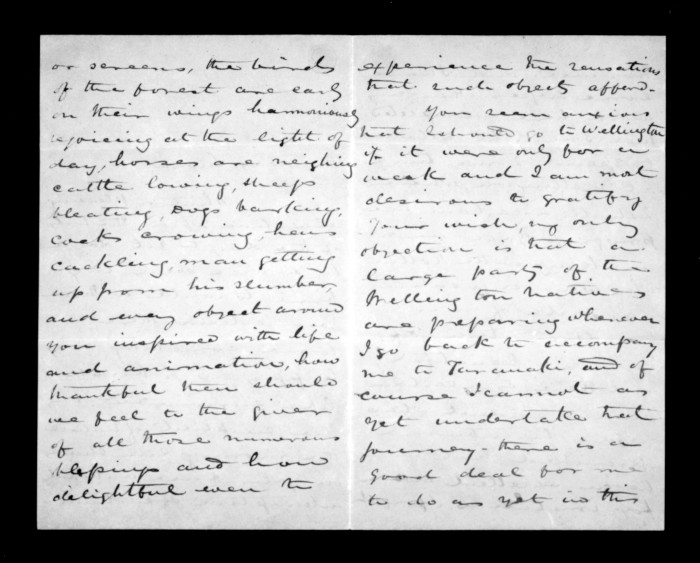 or screens, the birds
of the forest are early
on their wings harmoniously
rejoicing at the light of
day, horses are neighing
cattle lowing, sheeps
bleating, Dogs barking,
cocks crowing, hens
cackling, man getting
up from his slumber,
and every object around
you inspired with life
and animation, how
thankful then should
we feel to the giver
of all those numerous
blessings and how
delightful even to
experience the sensations
that such objects afford.
You seem anxious
that I should go to Wellington
if it were only for a
week and I am most
desirous to gratify
your wish, my only
objection is that a
large party of the
Wellington Natives
are preparing whenever
I go back to accompany
me to Taranaki, and of
course I cannot as
yet undertake that
journey - there is a
good deal for me
to do as yet in this